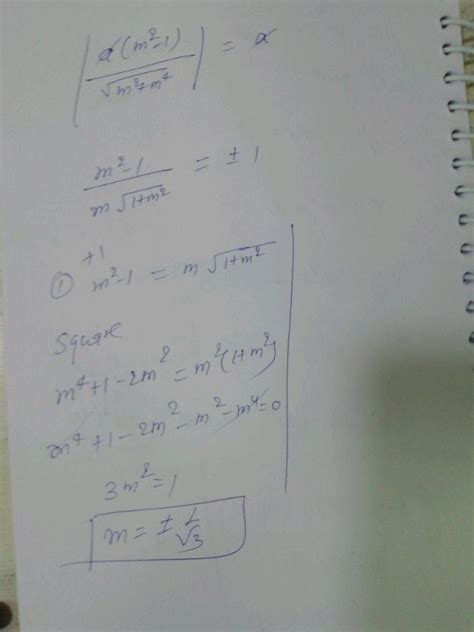 |a(m²-1)/√(m²+m⁴)| = a
m²-1/m√(1+m²) = ± 1
+1
① m²-1 = m√(1+m²)
Square
m⁴+1-2m² = m²(1+m²)
m⁴+1-2m²-m²-m⁴=0
3m²=1
m = ± 1/√3